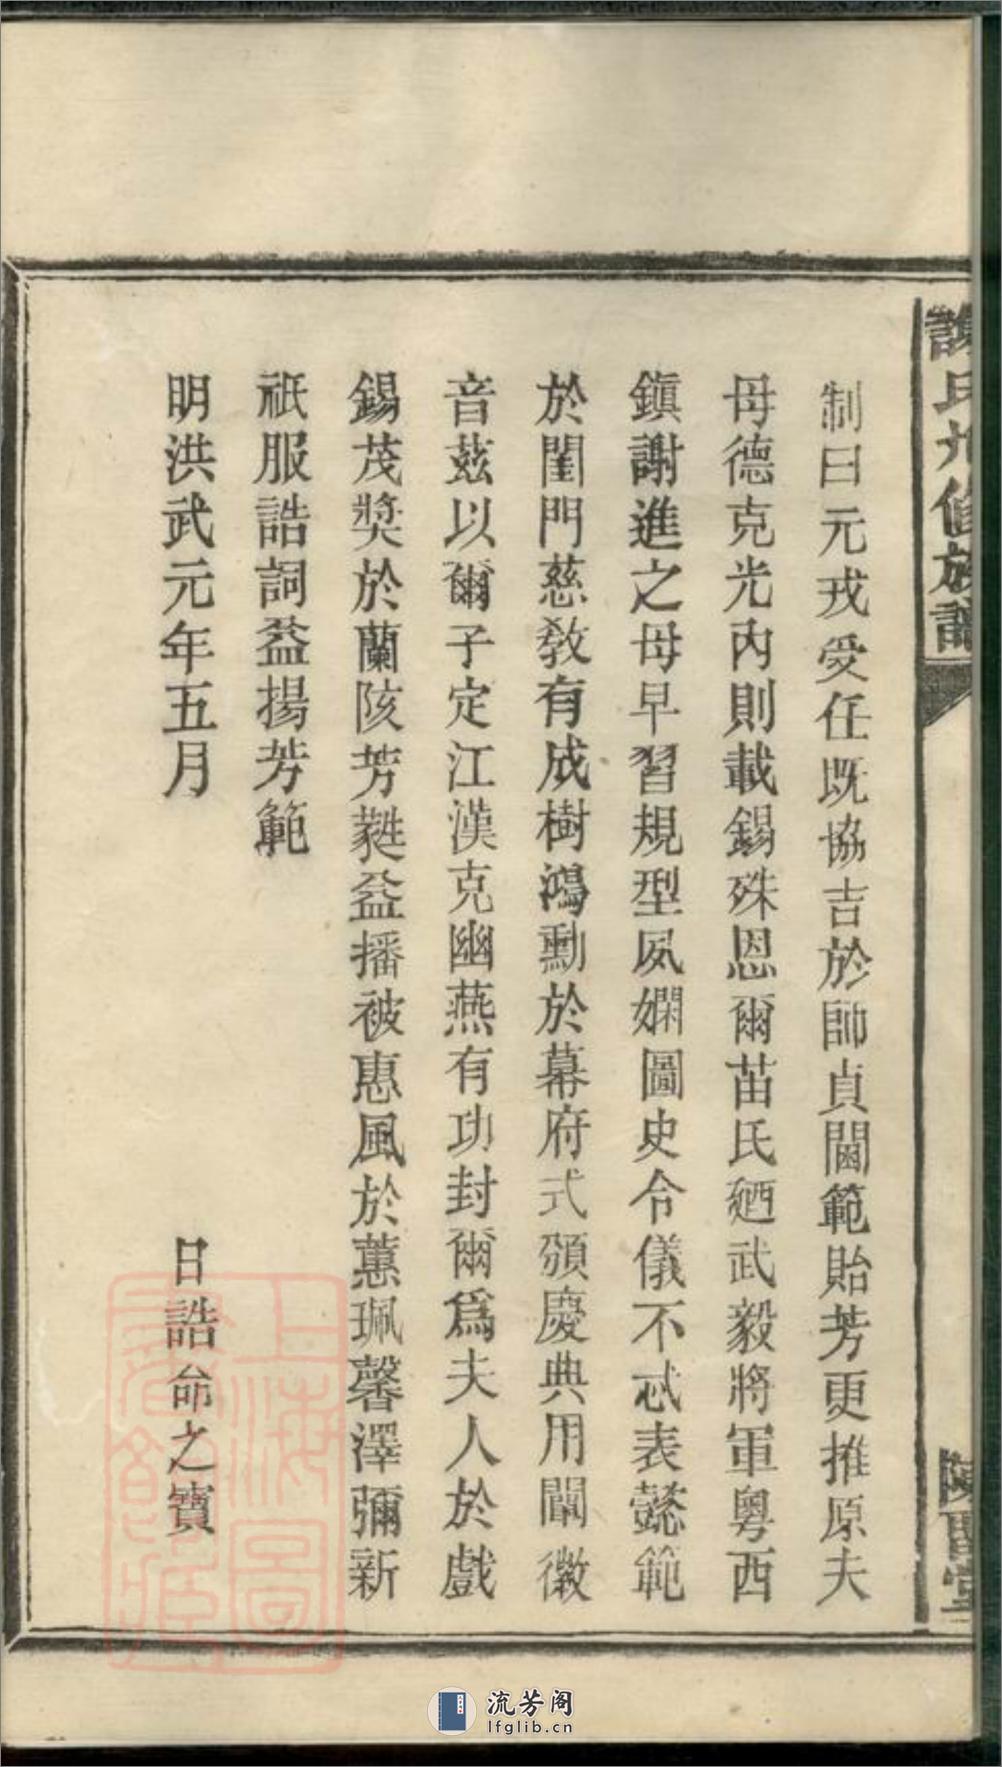 謝氏九修族譜
陳留堂
制曰元戎受任既協吉於師貞閫範貽芳更推原夫
母德克光內則載錫殊恩爾苗氏廼武毅將軍粤西
鎮謝進之母早習規型夙嫻圖史令儀不忒表懿範
於閨門慈教有成樹鴻勳於幕府式頒慶典用闡徽
音茲以爾子定江漢克幽燕有功封爾爲夫人於戲
錫茂獎於蘭陔芳蕤益播被惠風於蕙珮馨澤彌新
祇服誥詞益揚芳範
明洪武元年五月 日誥命之寶
上海圖書館藏
流芳阁
lfglib.cn